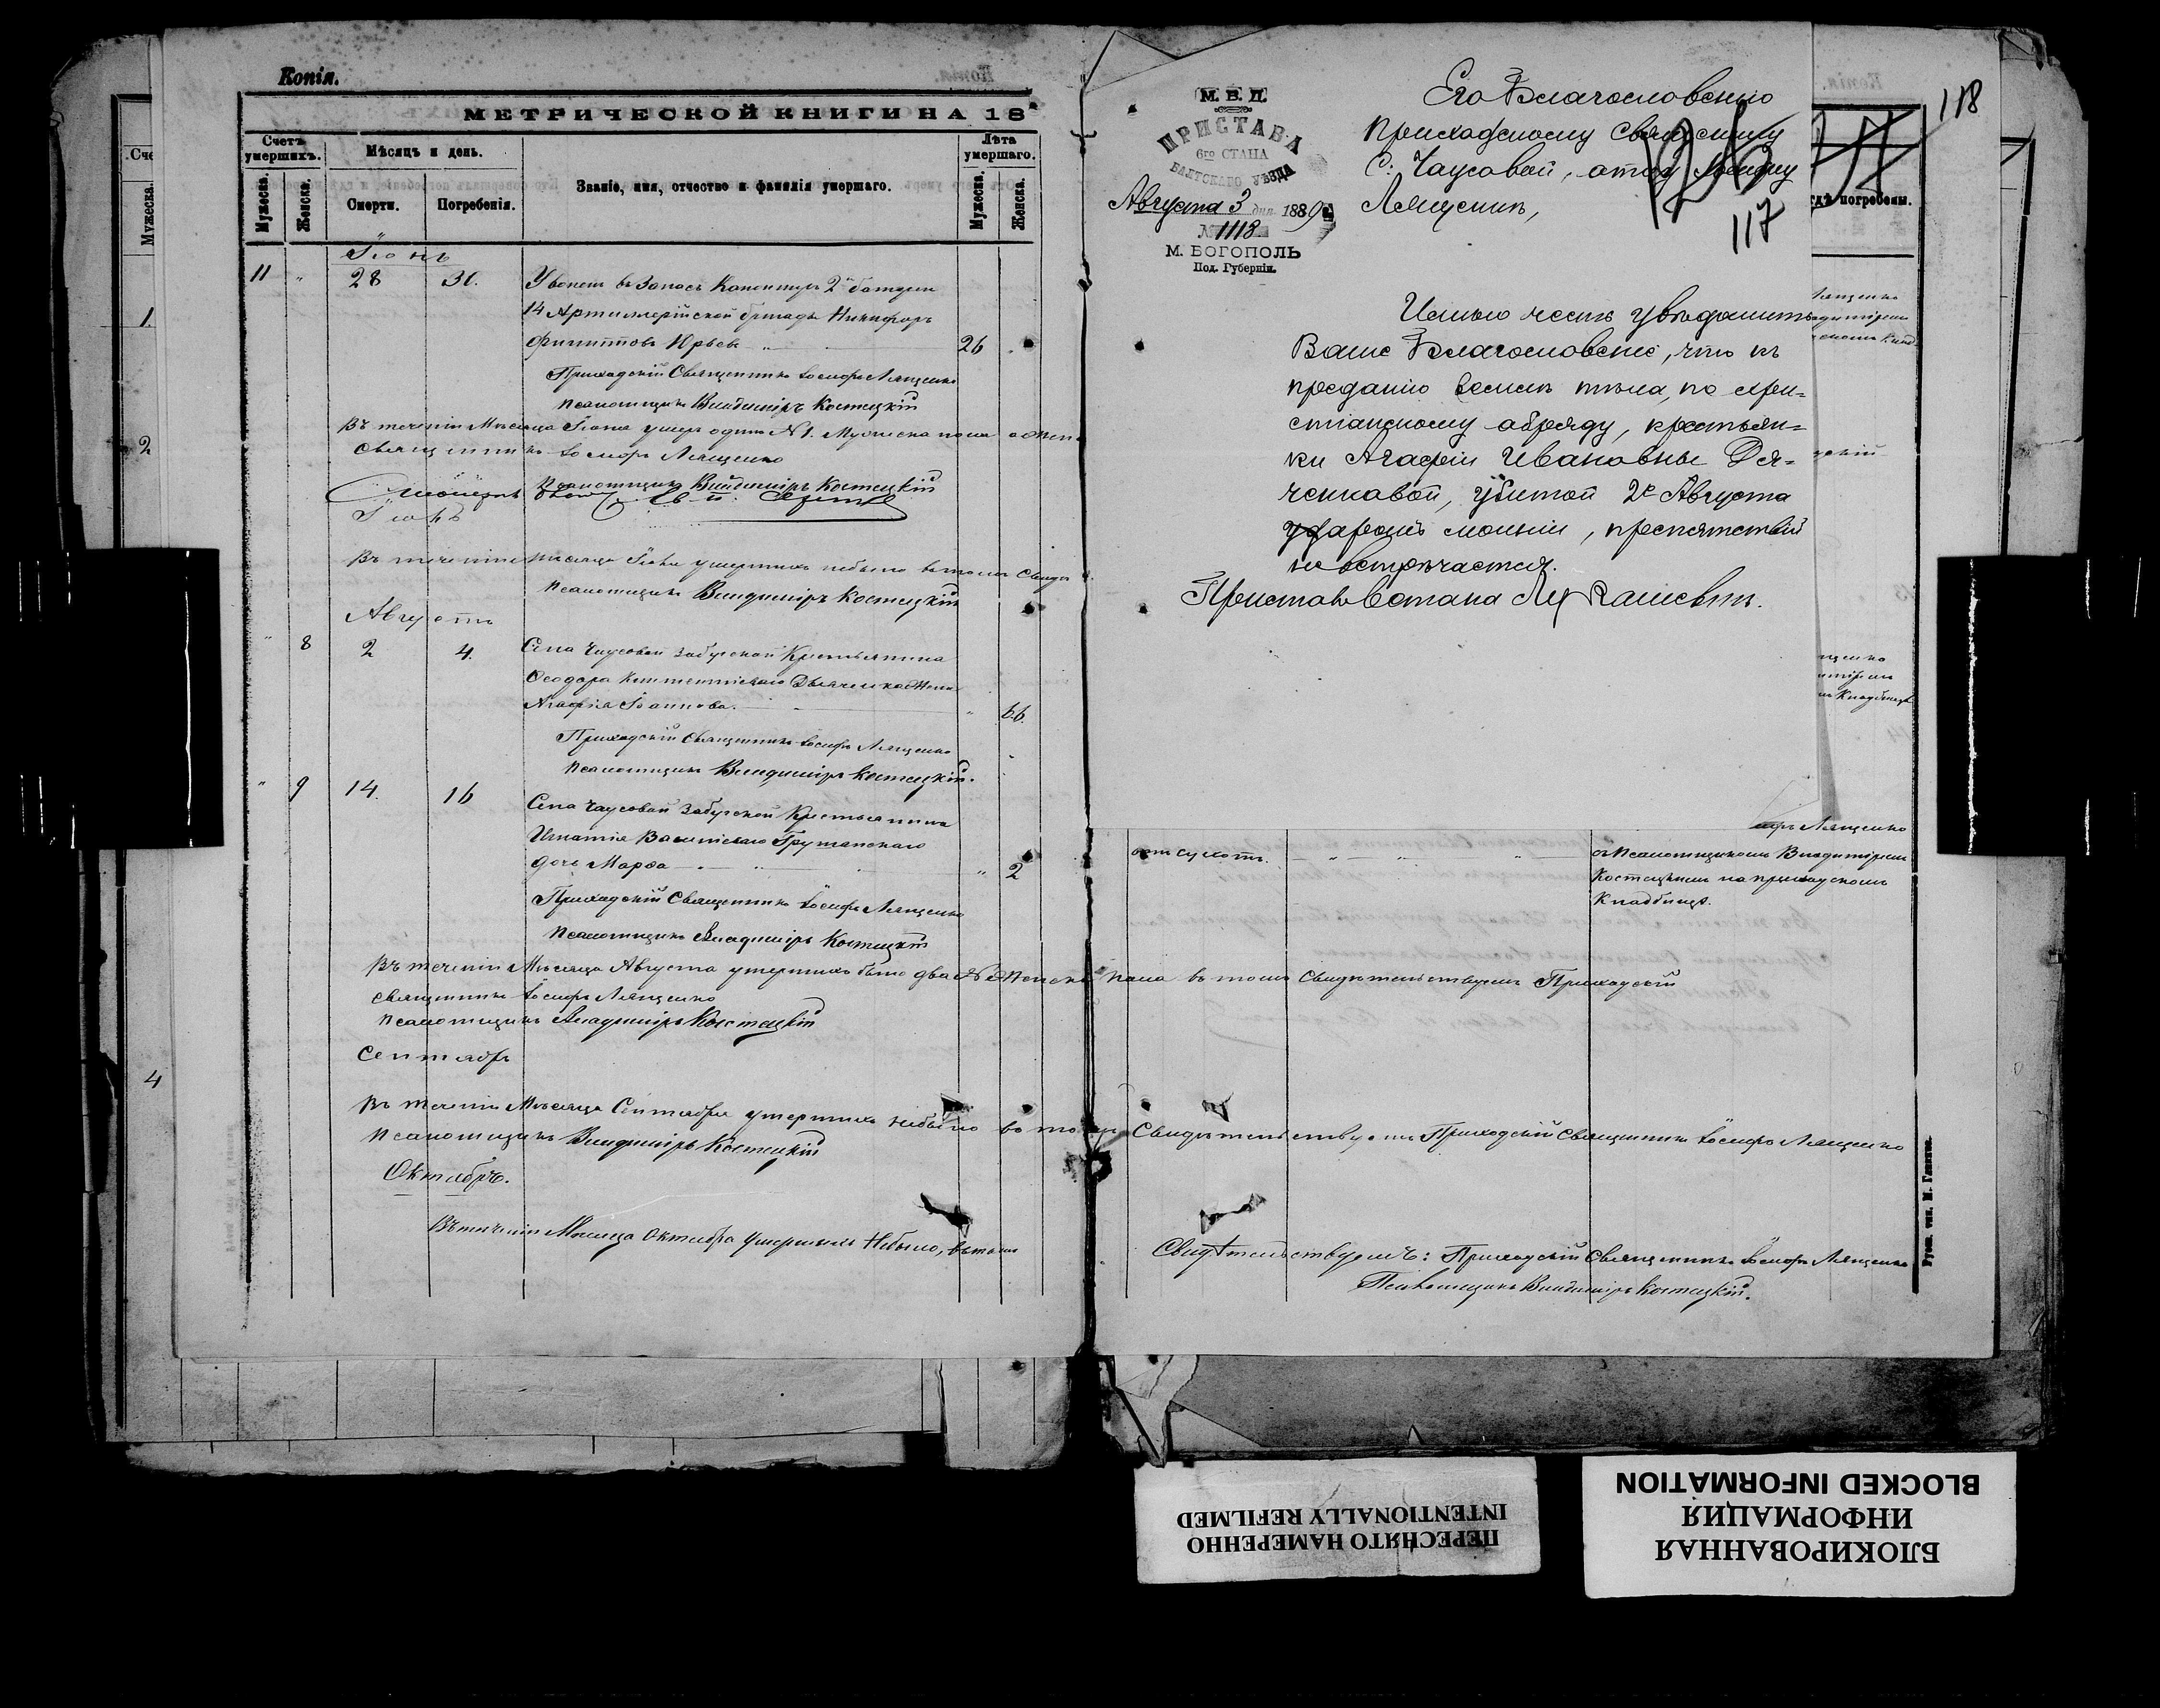 Копія.
МЕТРИЧЕСКОЙ КНИГИ НА 18
Счетъ умершихъ.
Мѣсяцъ и день.
Званіе, имя, отчество и фамилія умершаго.
Лѣта умершаго.
Мужеска.
Женска.
Смерти.
Погребенія.
Мужеска.
Женска.
Іюнь
11 " 28 30. Уволен. въ запасъ Канониръ 2й батареи
14 Артиллерійской бригады Никифоръ
Филипповъ 26
Приходскій Священникъ Іосифъ Лященко
Псаломщикъ Владиміръ Костецкій
Въ теченіи Мѣсяца Іюня умеръ одинъ № 1. Мужеска пола
священникъ Іосифъ Лященко
Псаломщикъ Владиміръ Костецкій
Іюль
Въ теченіи Мѣсяца Іюля умершихъ небыло въ томъ
Псаломщикъ Владиміръ Костецкій
Августъ
" 8 2 4. Села Чаусовой Забугской Крестьянина
Ѳеодора Дьяченка жена
Агафія Іоаннова. " 66.
Приходскій Священникъ Іосифъ Лященко
Псаломщикъ Владиміръ Костецкій.
" 9 14. 16 Села Чаусовой Забугской Крестьянина
Игнатія Василіева
дочь Марѳа " 2
Приходскій Священникъ Іосифъ Лященко
Псаломщикъ Владиміръ Костецкій
Въ теченіи Мѣсяца Августа умершихъ было два женска пола въ томъ Свидѣтельствуемъ Приходскій
священникъ Іосифъ Лященко
Псаломщикъ Владиміръ Костецкій
Сентябрь
Въ теченіи Мѣсяца Сентября умершихъ небыло въ томъ Свидѣтельствуемъ Приходскій Священникъ Іосифъ Лященко
Псаломщикъ Владиміръ Костецкій
Октябрь.
Въ теченіи Мѣсяца Октября Умершихъ Небыло, въ томъ
Свидѣтельствуемъ: Приходскій Священникъ Іосифъ Лященко
Псаломщикъ Владиміръ Костецкій.
М. В. Д.
ПРИСТАВА
6го СТАНА
БАЛТСКАГО УѢЗДА
Августа 3 дня 1889 г.
№ 1118
М. БОГОПОЛЬ
Под. Губерніи.
Его Благословенію
Приходскому Священнику
С. Чаусовой, отцу Іосифу
Лященкѣ,
117
118
гдѣ погребены.
Имѣю честь увѣдомить
Ваше Благословеніе, что къ
преданію землѣ тѣла, по хри=
стіанскому обряду, крестьян=
ки Агафіи Ивановны Дья=
ченковой, убитой 2го Августа
ударомъ молніи, препятствій
не встрѣчается.
Приставъ 6 стана
отъ сухотъ.
Іосифъ Лященко
съ Псаломщикомъ Владиміромъ
Костецкимъ на приходскомъ
Кладбищѣ.
1.
2
4
ПЕРЕСНЯТО НАМЕРЕННО
INTENTIONALLY REFILMED
БЛОКИРОВАННАЯ
ИНФОРМАЦИЯ
BLOCKED INFORMATION